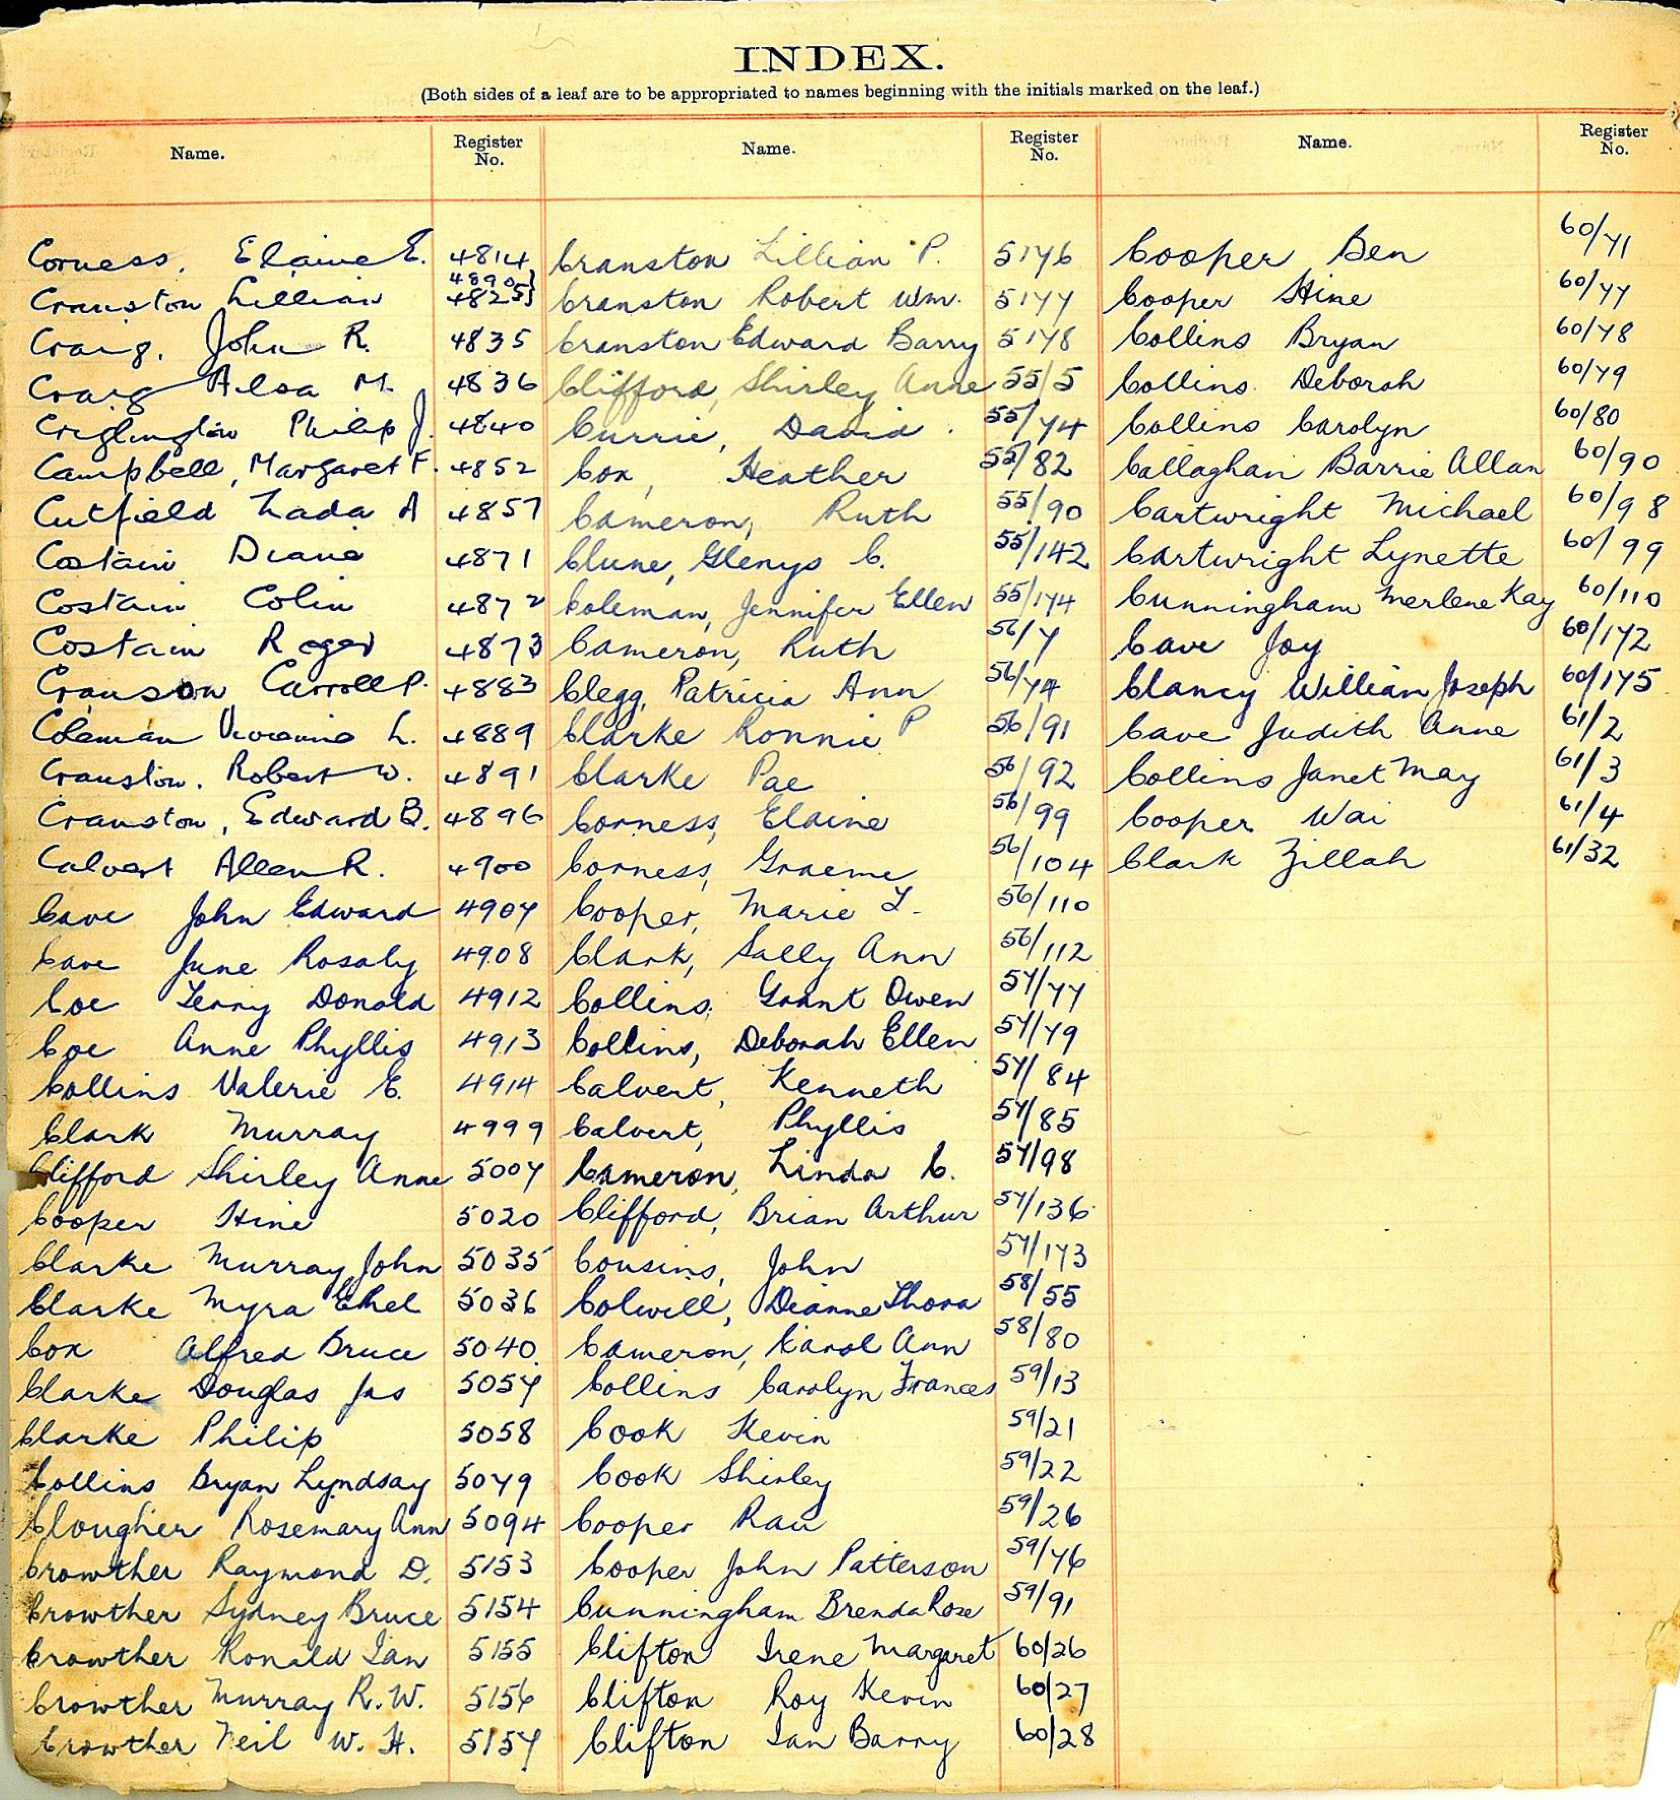 INDEX.
(Both sides of a leaf are to be appropriated to names beginning with the initials marked on the leaf.)
Name. Register No.
Corness, Elaine E. 4814
Cranston Lillian 4890 4825}
Craig, John R. 4835
Craig Ailsa M. 4836
Criglington Philip J. 4840
Campbell, Margaret F. 4852
Cutfield Nada A 4857
Costain Diane 4871
Costain Colin 4872
Costain Roger 4873
Cranston Carroll P. 4883
Coleman Vivienne L. 4889
Cranston, Robert W. 4891
Cranston, Edward B. 4896
Calvert Allen R. 4900
Cave John Edward 4907
Cave June Rosaly 4908
Coe Terry Donald 4912
Coe Anne Phyllis 4913
Collins Valerie E. 4914
Clark Murray 4999
Clifford Shirley Anne 5007
Cooper Hine 5020
Clarke Murray John 5035
Clarke Myra Ethel 5036
Cox Alfred Bruce 5040
Clarke Douglas Jas 5057
Clarke Philip 5058
Collins Bryan Lyndsay 5079
Clougher Rosemary Ann 5094
Crowther Raymond D. 5153
Crowther Sydney Bruce 5154
Crowther Ronald Ian 5155
Crowther Murray R. W. 5156
Crowther Neil W. H. 5157
Name. Register No.
Cranston Lillian P. 5176
Cranston Robert Wm. 5177
Cranston Edward Barry 5178
Clifford, Shirley Anne 55/5
Currie, David 55/74
Cox, Heather 55/82
Cameron, Ruth 55/90
Clune, Glenys C. 55/142
Coleman, Jennifer Ellen 55/174
Cameron, Ruth 56/7
Clegg, Patricia Ann 56/74
Clarke Ronnie P 56/91
Clarke Pae 56/92
Corness, Elaine 56/99
Corness, Graeme 56/104
Cooper, Marie T. 56/110
Clark, Sally Ann 56/112
Collins, Grant Owen 57/77
Collins, Deborah Ellen 57/79
Calvert, Kenneth 57/84
Calvert, Phyllis 57/85
Cameron, Linda C. 57/98
Clifford, Brian Arthur 57/136
Cousins, John 57/173
Colwill, Dianne Thora 58/55
Cameron, Karol Ann 58/80
Collins Carolyn Frances 59/13
Cook Kevin 59/21
Cook Shirley 59/22
Cooper Rau 59/26
Cooper John Patterson 59/76
Cunningham Brenda Rose 59/91
Clifton Irene Margaret 60/26
Clifton Roy Kevin 60/27
Clifton Ian Barry 60/28
Name. Register No.
Cooper Ben 60/71
Cooper Hine 60/77
Collins Bryan 60/78
Collins Deborah 60/79
Collins Carolyn 60/80
Callaghan Barrie Allan 60/90
Cartwright Michael 60/98
Cartwright Lynette 60/99
Cunningham Merlene Kay 60/110
Cave Joy 60/172
Clancy William Joseph 60/175
Cave Judith Anne 61/2
Collins Janet May 61/3
Cooper Wai 61/4
Clark Zillah 61/32